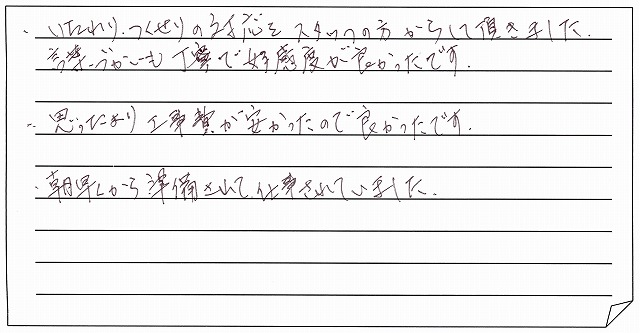 ・いたれり、つくせりの対応をスタッフの方からして頂きました.
言葉づかいも丁寧で好感度が良かったです.
・思ったより工事費が安かったので良かったです.
・朝早くから準備されて仕事されていました.